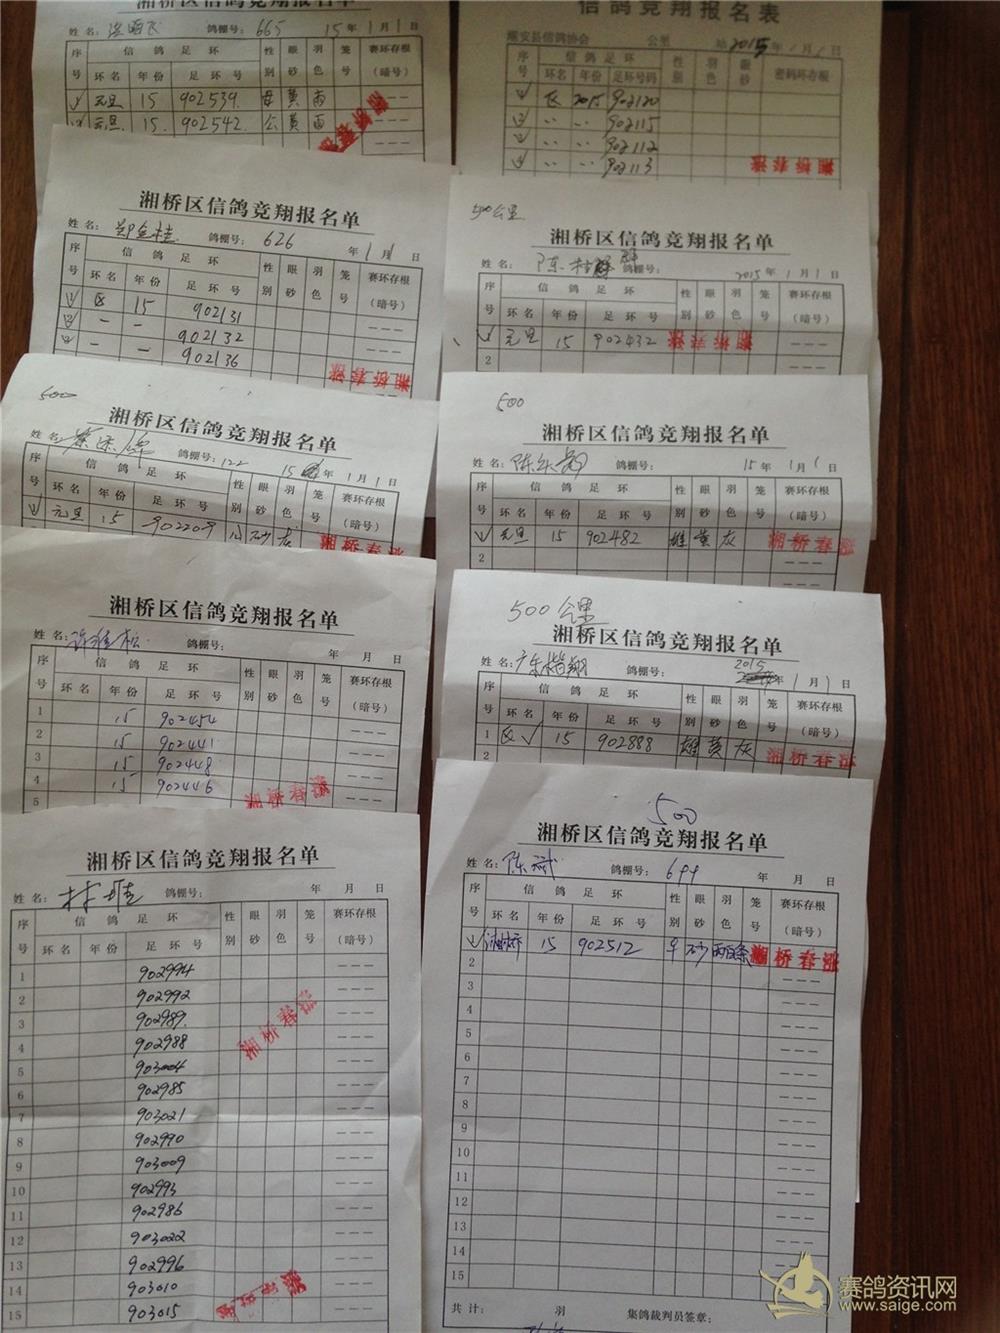 湘桥区信鸽竞翔报名单
鸽棚号: 665 15年1月1日
序号 信鸽足环 性别 眼砂 羽色 笼号 赛环存根(暗号)
环名 年份 足环号
1 元旦 15 902539. 母 黄 雨
2 元旦. 15. 902542. 公 黄 雨
湘桥春涨
信鸽竞翔报名表
县信鸽协会 公里 站 2015年1月1日
序号 信鸽足环 性别 羽色 眼砂 密码环存根
环名 年份 足环号码
区 2015 902120
〃 〃 902115
〃 〃 902112
〃 〃 902113
湘桥春涨
湘桥区信鸽竞翔报名单
姓名: 郑金桂 鸽棚号: 626 年1月1日
序号 信鸽足环 性别 眼砂 羽色 笼号 赛环存根(暗号)
环名 年份 足环号
1 区 15 902131
2 — — 902132
3 — — 902136
湘桥春涨
500公里
湘桥区信鸽竞翔报名单
姓名: 陈 鸽棚号: 2015年1月1日
序号 信鸽足环 性别 眼砂 羽色 笼号 赛环存根(暗号)
环名 年份 足环号
1 元旦 15 902432
2
湘桥春涨
500
湘桥区信鸽竞翔报名单
姓名: 鸽棚号: 122 15年1月1日
序号 信鸽足环 性别 眼砂 羽色 笼号 赛环存根(暗号)
环名 年份 足环号
1 元旦 15 902209 砂 灰
湘桥春涨
500
湘桥区信鸽竞翔报名单
姓名: 陈 鸽棚号: 15年1月1日
序号 信鸽足环 性别 眼砂 羽色 笼号 赛环存根(暗号)
环名 年份 足环号
1 元旦 15 902482 雄 黄 灰
2
湘桥春涨
湘桥区信鸽竞翔报名单
姓名: 许雅松 鸽棚号: 年 月 日
序号 信鸽足环 性别 眼砂 羽色 笼号 赛环存根(暗号)
环名 年份 足环号
1 15 902454
2 15 902441
3 15 902448
4 15 902446
5
湘桥春涨
500公里
湘桥区信鸽竞翔报名单
姓名: 楷翔 鸽棚号: 2015年1月1日
序号 信鸽足环 性别 眼砂 羽色 笼号 赛环存根(暗号)
环名 年份 足环号
1 区√ 15 902888 雄 黄 灰
2
湘桥春涨
湘桥区信鸽竞翔报名单
姓名: 林 鸽棚号: 年 月 日
序号 信鸽足环 性别 眼砂 羽色 笼号 赛环存根(暗号)
环名 年份 足环号
1 902994
2 902992
3 902989.
4 902988
5 903004
6 902985
7 903021
8 902990
9 903009
10 902993
11 902986
12 903022
13 902996
14 903010
15 903015
湘桥春涨
500
湘桥区信鸽竞翔报名单
姓名: 陈斌 鸽棚号: 644 年 月 日
序号 信鸽足环 性别 眼砂 羽色 笼号 赛环存根(暗号)
环名 年份 足环号
1 湘桥 15 902512 砂 雨条
湘桥春涨
2
3
4
5
6
7
8
9
10
11
12
13
14
15
共计: 羽 集鸽裁判员签章:
赛鸽资讯网
www.saige.com